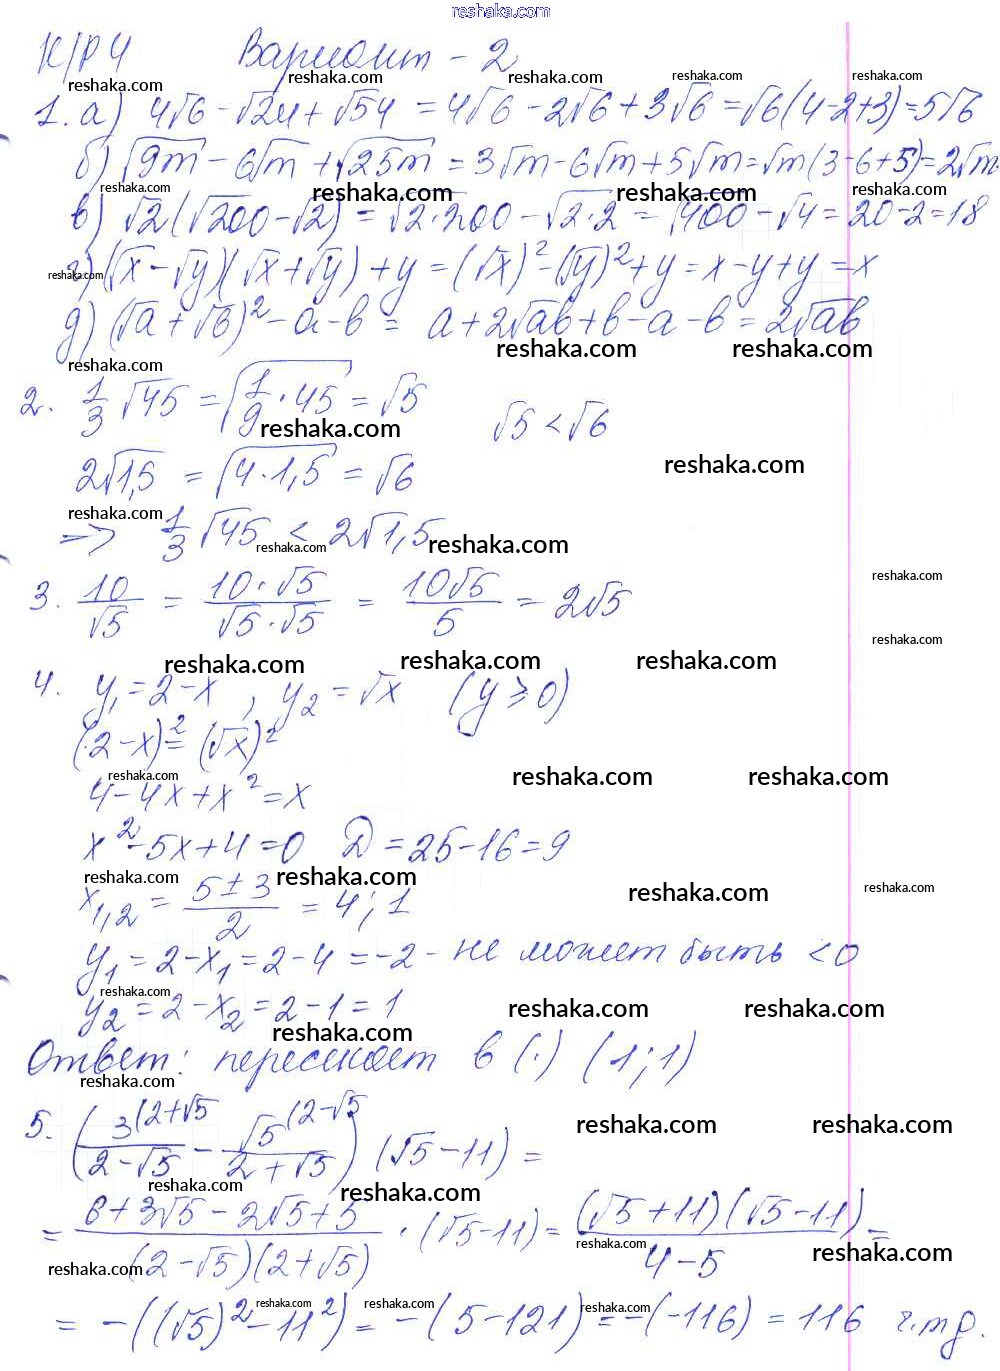 reshaka.com
К/Р 4 Вариант - 2
1. а) 4√6 - √24 + √54 = 4√6 - 2√6 + 3√6 = √6(4-2+3) = 5√6
б) √9m - 6√m + √25m = 3√m - 6√m + 5√m = √m(3-6+5) = 2√m.
в) √2(√200 - √2) = √2·200 - √2·2 = √400 - √4 = 20 - 2 = 18
г) (√x - √y)(√x + √y) + y = (√x)² - (√y)² + y = x - y + y = x
д) (√a + √b)² - a - b = a + 2√ab + b - a - b = 2√ab
2. 1/3 √45 = √1/9·45 = √5 √5 < √6
2√1,5 = √4·1,5 = √6
=> 1/3 √45 < 2√1,5
3. 10/√5 = 10·√5/√5·√5 = 10√5/5 = 2√5
4. y₁ = 2 - x , y₂ = √x (y ≥ 0)
(2 - x)² = (√x)²
4 - 4x + x² = x
x² - 5x + 4 = 0 D = 25 - 16 = 9
x₁,₂ = 5 ± 3/2 = 4; 1
y₁ = 2 - x₁ = 2 - 4 = -2 - не может быть < 0
y₂ = 2 - x₂ = 2 - 1 = 1
Ответ: пересекает в (·) (1; 1)
5. (3(2+√5/2-√5 - √5(2-√5/2+√5) (√5 - 11) =
= 6 + 3√5 - 2√5 + 5/(2-√5)(2+√5) · (√5 - 11) = (√5 + 11)(√5 - 11)/4 - 5 =
= -((√5)² - 11²) = -(5 - 121) = -(-116) = 116 ч.т.д.